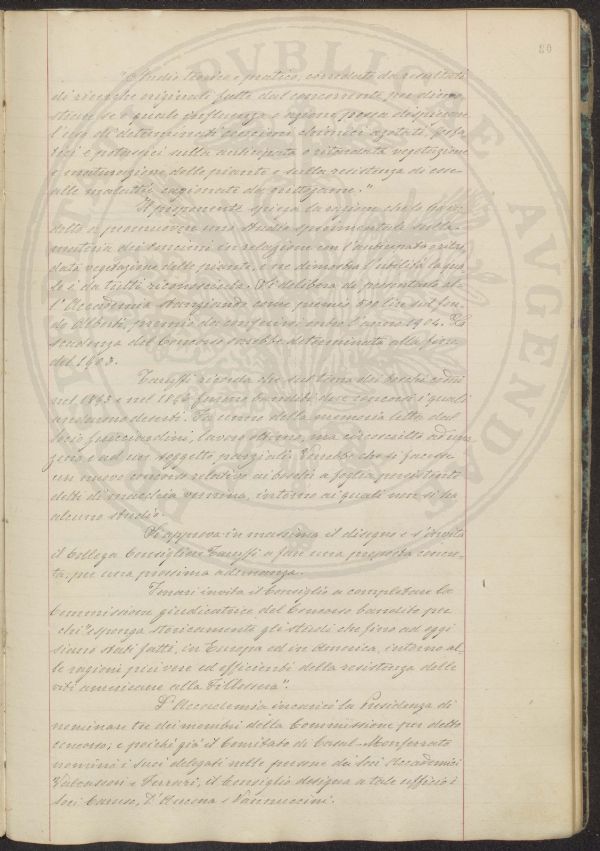 80
"Studio teorico e pratico, corredato da resultati
di ricerche originali fatte dal concorrente per dimo-
strare se e quale influenza e azione possa dispiegare
l'uso di determinati concimi chimici azotati, fosfa-
tici e potassici sulla anticipata o ritardata vegetazione
e maturazione delle piante e sulla resistenza di esse
alle malattie cagionate da crittogame."
Il proponente spiega la ragione che lo ha
a promuovere uno studio sperimentale sulla
materia dei concimi in relazione con l'anticipata o ritar-
data vegetazione delle piante, e ne dimostra l'utilità la qua-
le è da tutti riconosciuta. Si delibera di presentarlo al-
l'Accademia stanziando come premio 500 lire sul fon-
do Alberti, premio da conferirsi entro l'anno 1904. La
scadenza del Concorso sarebbe determinata alla fine
del 1903.
Taruffi ricorda che sul tema dei boschi cedui
nel 1863 e nel 1865 furono banditi due concorsi i quali
andarono deserti. Fa cenno della memoria letta dal
socio Guicciardini, lavoro ottimo, ma circoscritto ad una
zona e ad un soggetto parziali. Vorrebbe che si facesse
un nuovo concorso relativo ai boschi a foglia persistente
detti di macchia, intorno ai quali non si ha
alcuno studio.
Si approva in massima il disegno e s'invita
il Collega Consigliere Taruffi a fare una proposta concre-
ta, per una prossima adunanza.
invita il Consiglio a completare la
Commissione giudicatrice del Concorso bandito per
chi "esponga storicamente gli studi che fino ad oggi
siano stati fatti, in Europa ed in America, intorno al-
le ragioni più vere ed efficienti della resistenza delle
viti americane alla Fillossera".
L'Accademia incaricò la Presidenza di
nominare tre dei membri della Commissione per detto
concorso; e poichè già il Comitato di Casal-Monferrato
nominò i suoi delegati nelle persone dei Soci Accademici
e Ferrari, il Consiglio designa a tale ufficio i
Soci Caruso, D'Ancona e Vannuccini.